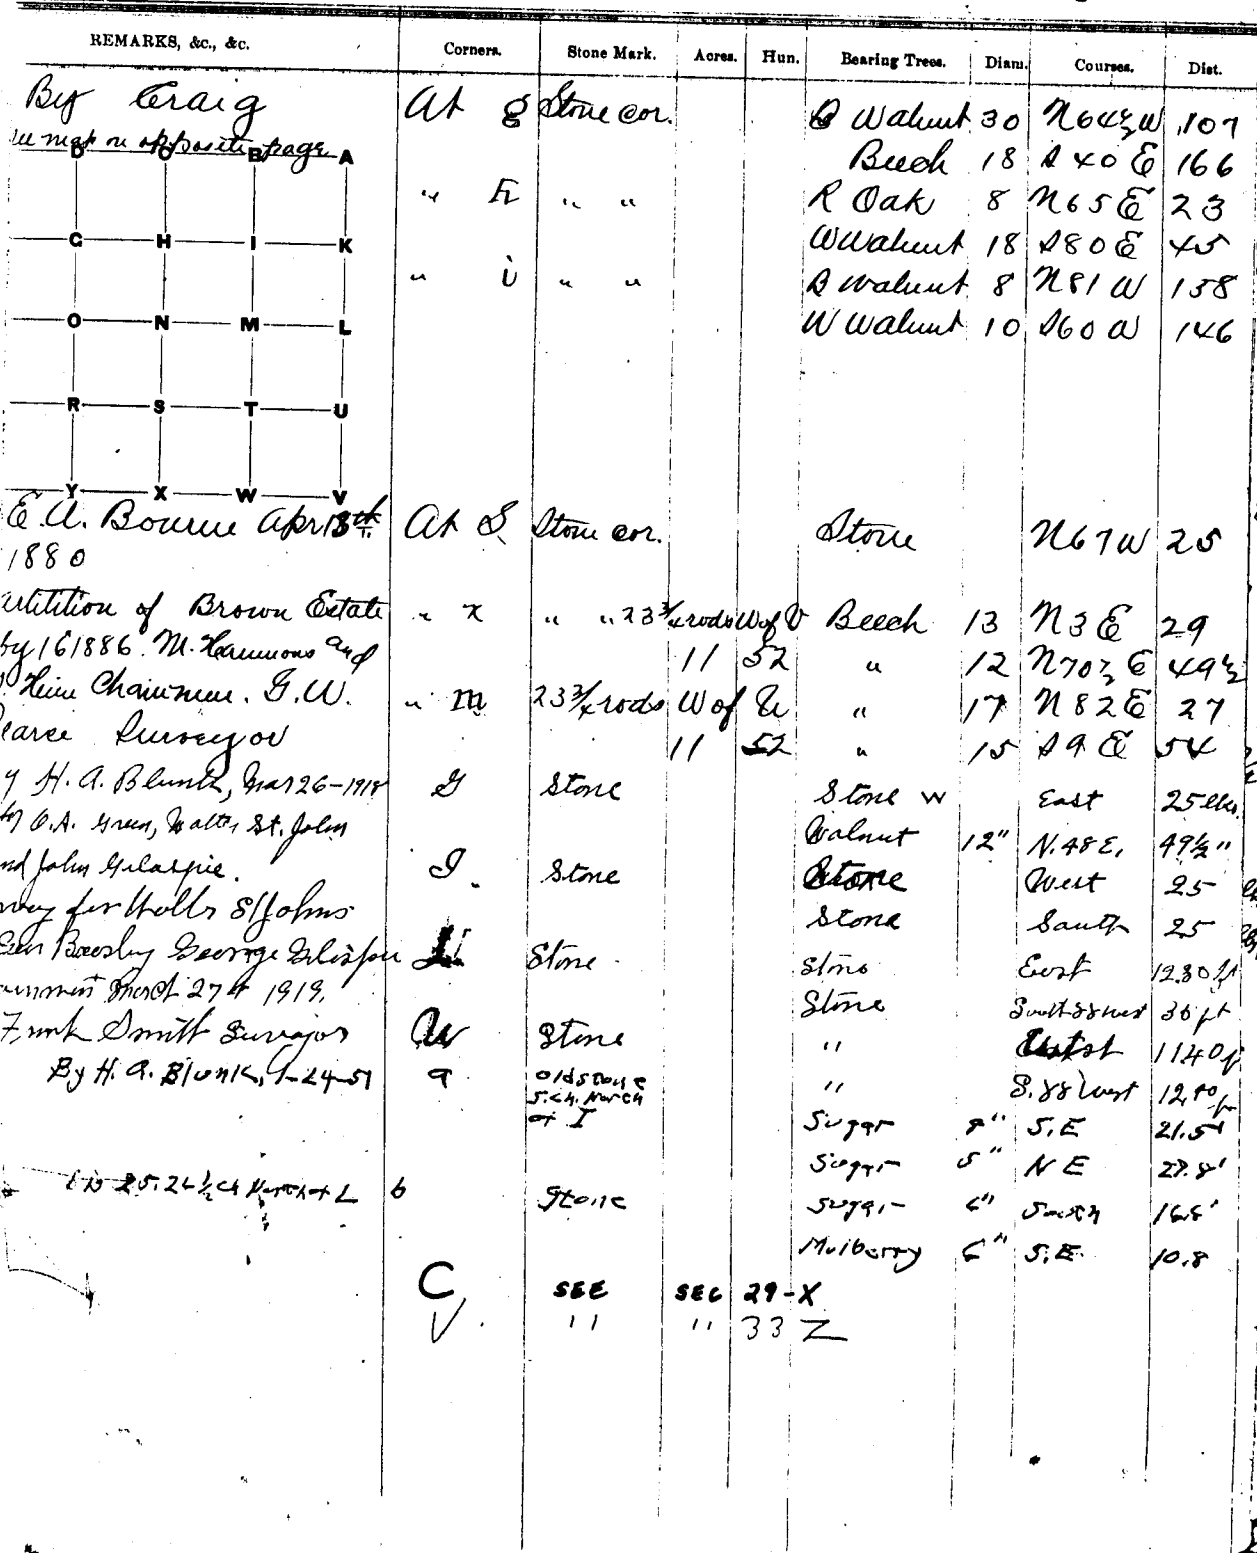 REMARKS, &c., &c. Corners. Stone Mark. Acres. Hun. Bearing Trees. Diam. Courses. Dist.
By Craig At g Stone cor. B Walnut 30 N64½W .107
map on opposite page Beech 18 S40E 166
D C B A
" h " " R Oak 8 N65E 23
G H I K
W Walnut 18 S80E 45
" i " " B Walnut 8 N81W 138
O N M L
W Walnut 10 S60W 146
R S T U
Y X W V
E. A. Bourne Apr 13th At S Stone cor. Stone N67W 25
1880
of Brown Estate " x " " 23¾ rods W of V Beech 13 N3E 29
161886. M. Hammons and 11 52 " 12 N70½E 49½
Chainmen. G.W. " m 23¾ rods W of U " 17 N82E 27
Surveyor 11 52 " 15 S9E 54
H. A. Blunk, Mar 26-1918 G Stone Stone W East 25
O.A. Green, Walter St. John Walnut 12" N.48E. 49½"
John Gilaspie. I. Stone Stone West 25
for St Johns Stone South 25
George Stone Stone East 12.80
March 27th 1919. Stone 36 ft
Frank Smith Survejor W Stone " 1140
By H. A. Blunk, 1-24-51 a Old stone " S. 88 West
5. ch. North
of I Sugar S.E 21.5'
Sugar 5" NE 27.8'
25.26½ ch North of L b Stone Sugar 6" South 16.8'
Mulberry 6" S.E. 10.8
C SEE SEC 29-X
V. " " 33 Z